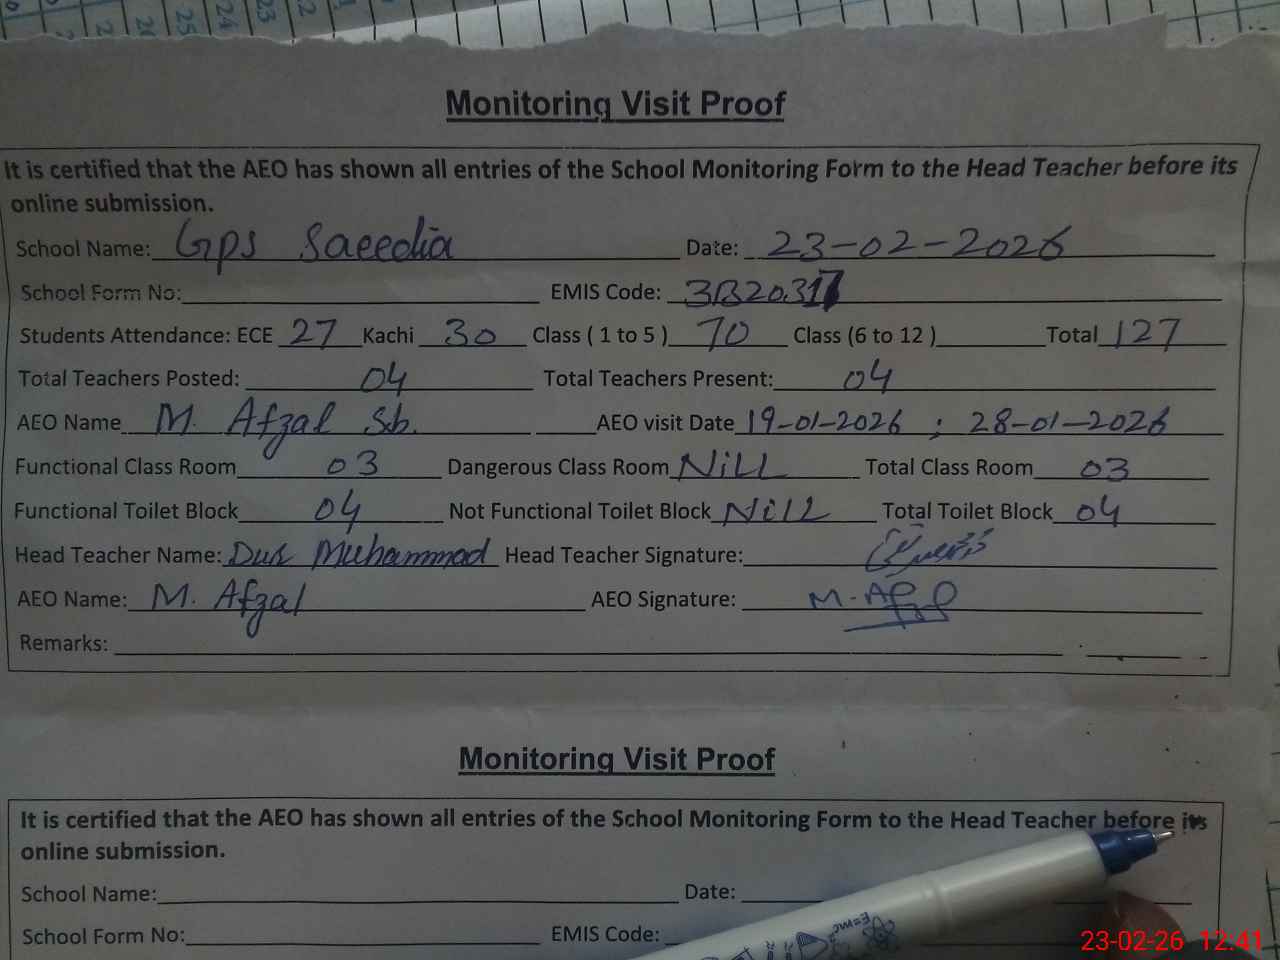 Monitoring Visit Proof
It is certified that the AEO has shown all entries of the School Monitoring Form to the Head Teacher before its
online submission.
School Name: Gps Saeedia Date: 23-02-2026
School Form No: EMIS Code:
Students Attendance: ECE 27 Kachi 30 Class ( 1 to 5 ) 70 Class (6 to 12 ) Total 127
Total Teachers Posted: 04 Total Teachers Present: 04
AEO Name M. Afzal Sb. AEO visit Date 19-01-2026 ; 28-01-2026
Functional Class Room 03 Dangerous Class Room NiLL Total Class Room 03
Functional Toilet Block 04 Not Functional Toilet Block NiLL Total Toilet Block 04
Head Teacher Name: Muhammad Head Teacher Signature:
AEO Name: M. Afzal AEO Signature: M. Afzal
Remarks:
Monitoring Visit Proof
It is certified that the AEO has shown all entries of the School Monitoring Form to the Head Teacher before its
online submission.
School Name: Date:
School Form No: EMIS Code:
E=mc
23-02-26 12:41